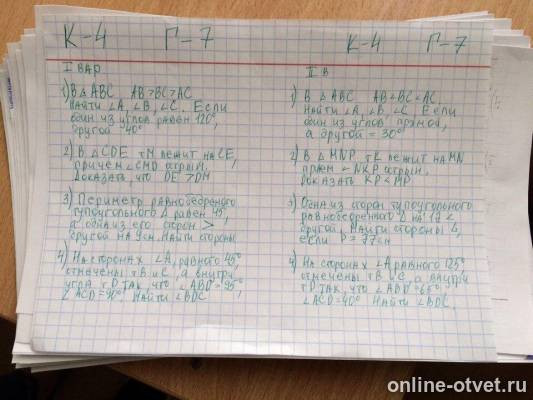 К-4 Г-7
I ВАР
1) В △ ABC AB>BC>AC
Найти ∠A, ∠B, ∠C. Если
один из углов равен 120°,
другой 40°
2) В △CDE тM лежит на CE,
причем ∠CMD острый.
Доказать, что DE > DM
3) Периметр равнобедреного
тупоугольного △ равен 45,
а одна из его сторон >
другой на 9см. Найти стороны
4) На сторонах ∠A, равного 45°
отмечены тB и C, а внутри
угла тD так, что ∠ABD = 95°,
∠ACD=90° Найти ∠BDC.
К-4 Г-7
II В
1) В △ ABC AB<BC<AC.
Найти ∠A, ∠B, ∠C Если
один из углов прямой,
а другой = 30°
2) В △ MNP тK лежит на MN
причем ∠NKP острый.
Доказать KP < MP
3) Одна из сторон тупоугольного
равнобедренного △ на 17 <
другой. Найти стороны △,
если P = 77см
4) На сторонах ∠A равного 125°
отмечены тB и C, а внутри
тD так, что ∠ABD=65°,
∠ACD=40° Найти ∠BDC.
online-otvet.ru